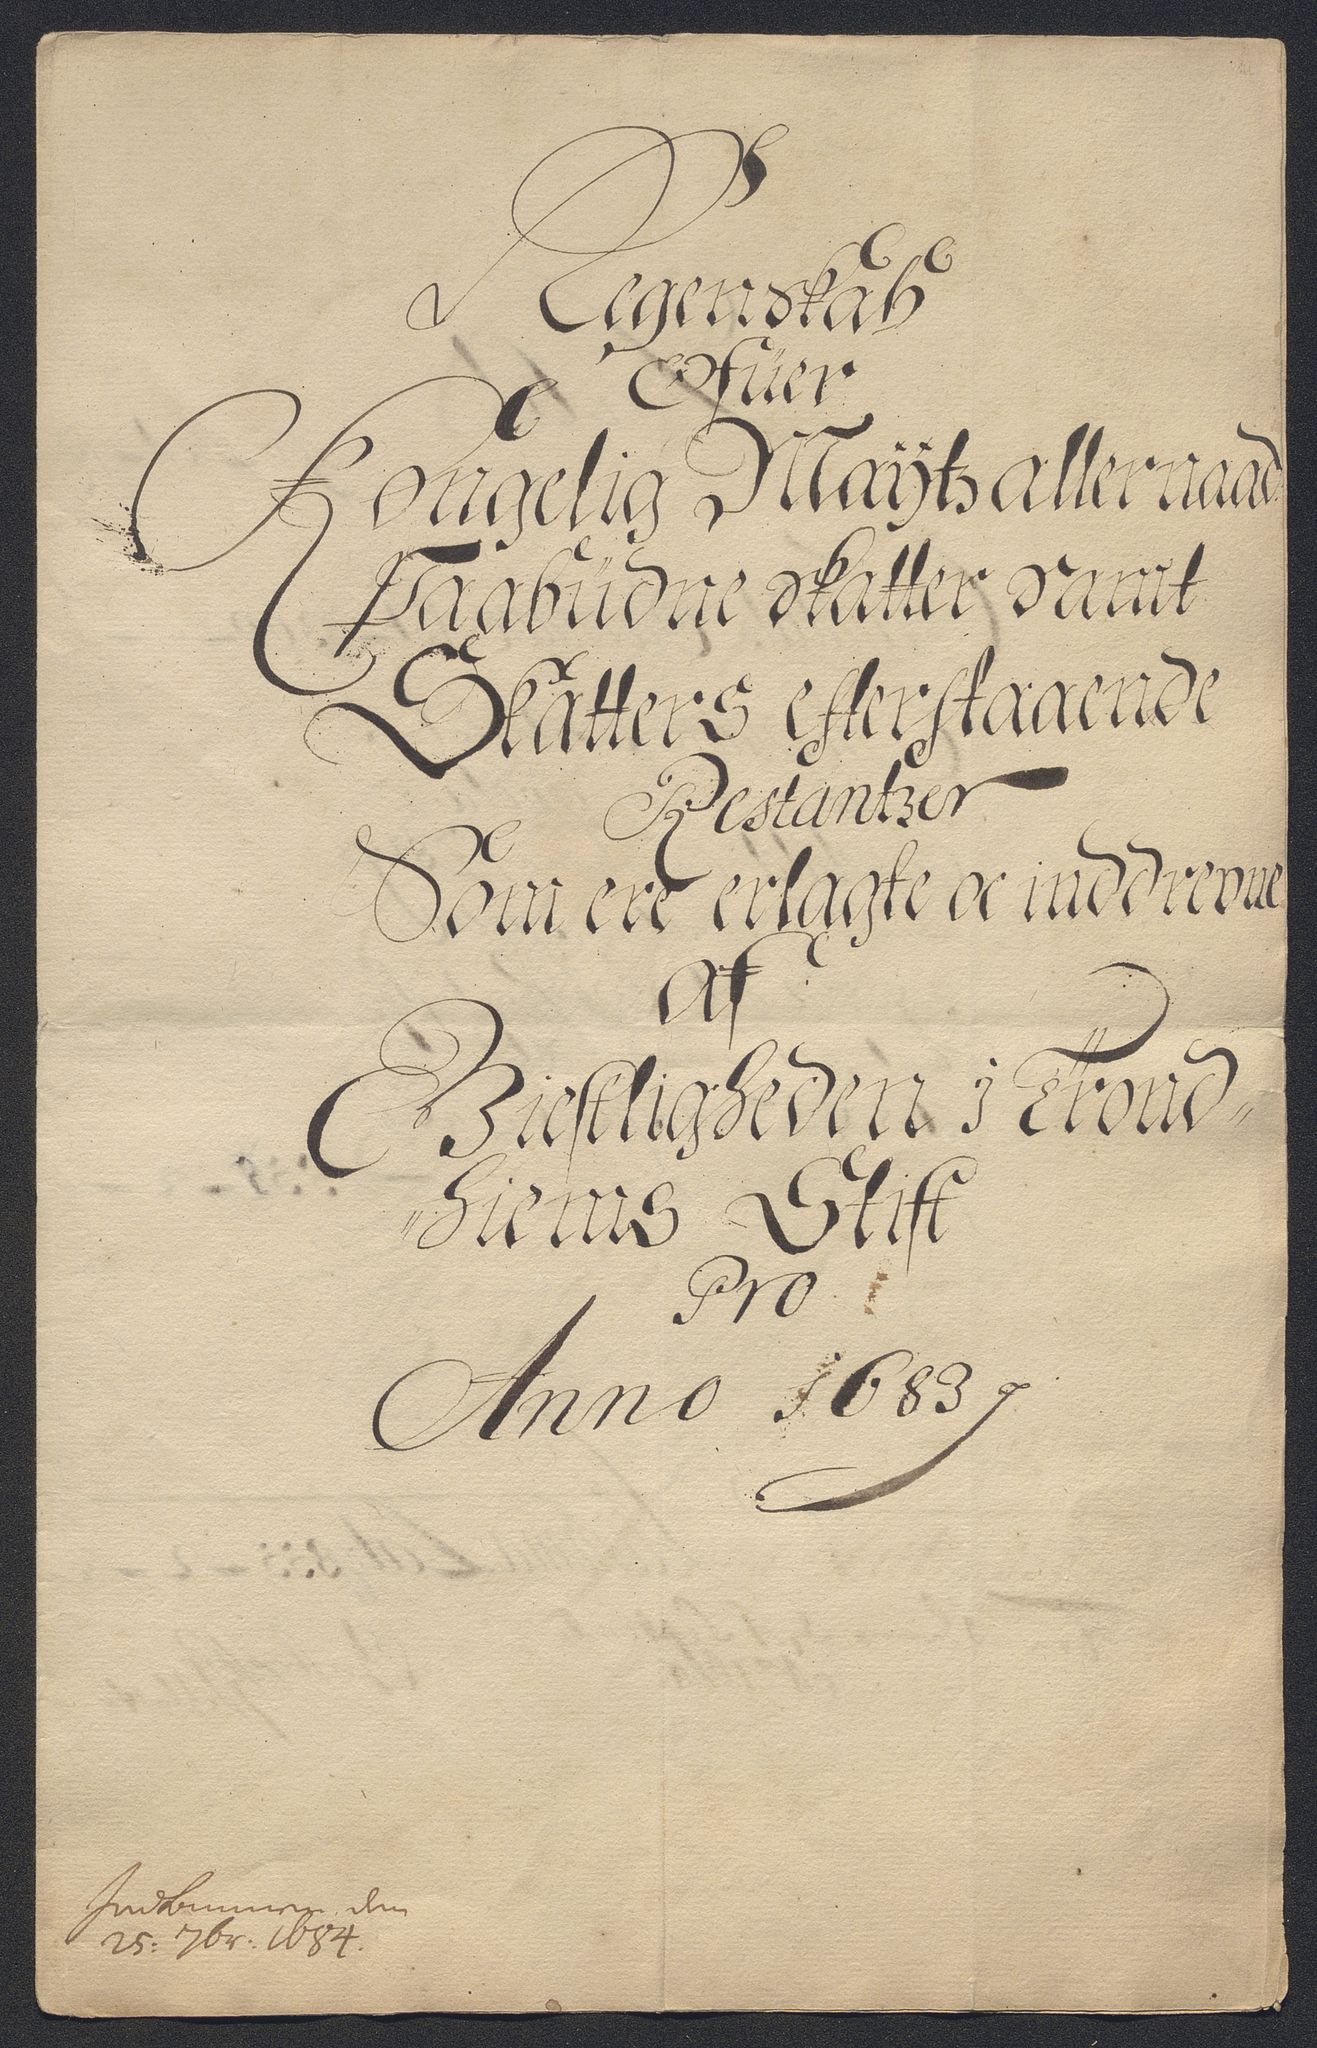 Regenskab
Ofuer
Kongelig Maÿtz allernaad:
Paabüdne skatter samt
Skatters efterstaaende
Restantzer
Som ere erlagte oc inddrevne
af
Gieftligheden i Trond„
„hiems Stift
Pro
Anno 1683
Indkommen den
25: 7br: 1684.